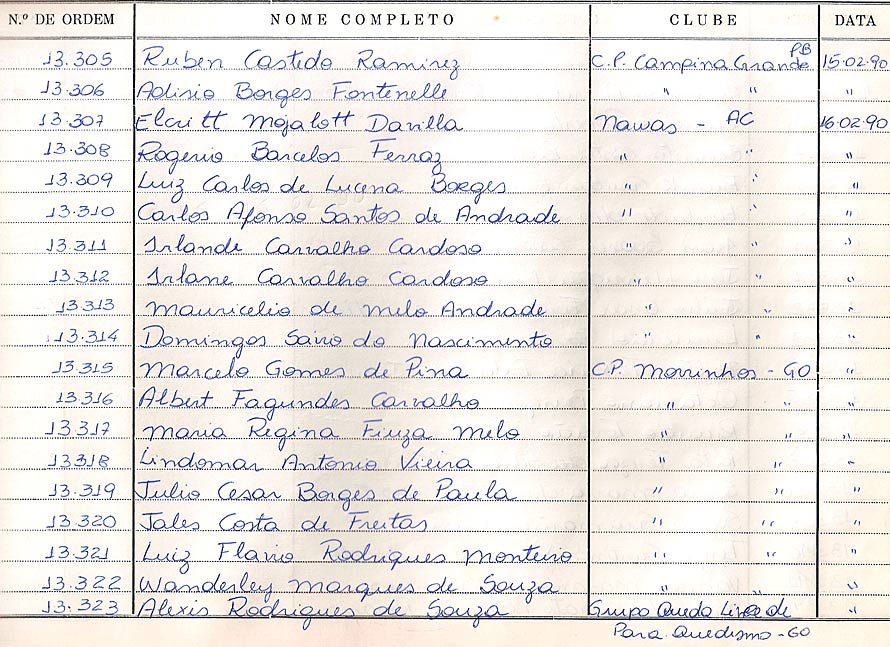 N.º DE ORDEM NOME COMPLETO CLUBE DATA
13.305 Ruben Castedo Ramirez C.P. Campina Grande PB 15.02.90
13.306 Adisio Borges Fontenelle " " "
13.307 Elcritt Mojalott Davilla Nawas - AC 16.02.90
13.308 Rogerio Barcelos Ferraz " " "
13.309 Luiz Carlos de Lucena Borges " " "
13.310 Carlos Afonso Santos de Andrade " " "
13.311 Irlande Carvalho Cardoso " " "
13.312 Irlane Carvalho Cardoso " " "
13.313 Mauricelio de Melo Andrade " " "
13.314 Domingos Savio do Nascimento " " "
13.315 Marcelo Gomes de Pina C.P. Morrinhos - GO "
13.316 Albert Fagundes Carvalho " " "
13.317 Maria Regina Fiuza Melo " " "
13318 Lindomar Antonio Vieira " " "
13.319 Julio Cesar Borges de Paula " " "
13.320 Jales Costa de Freitas " " "
13.321 Luiz Flavio Rodrigues Monteiro " " "
13.322 Wanderley Marques de Souza " " "
13.323 Alexis Rodrigues de Souza Grupo Queda Livre de "
Para.Quedismo-GO